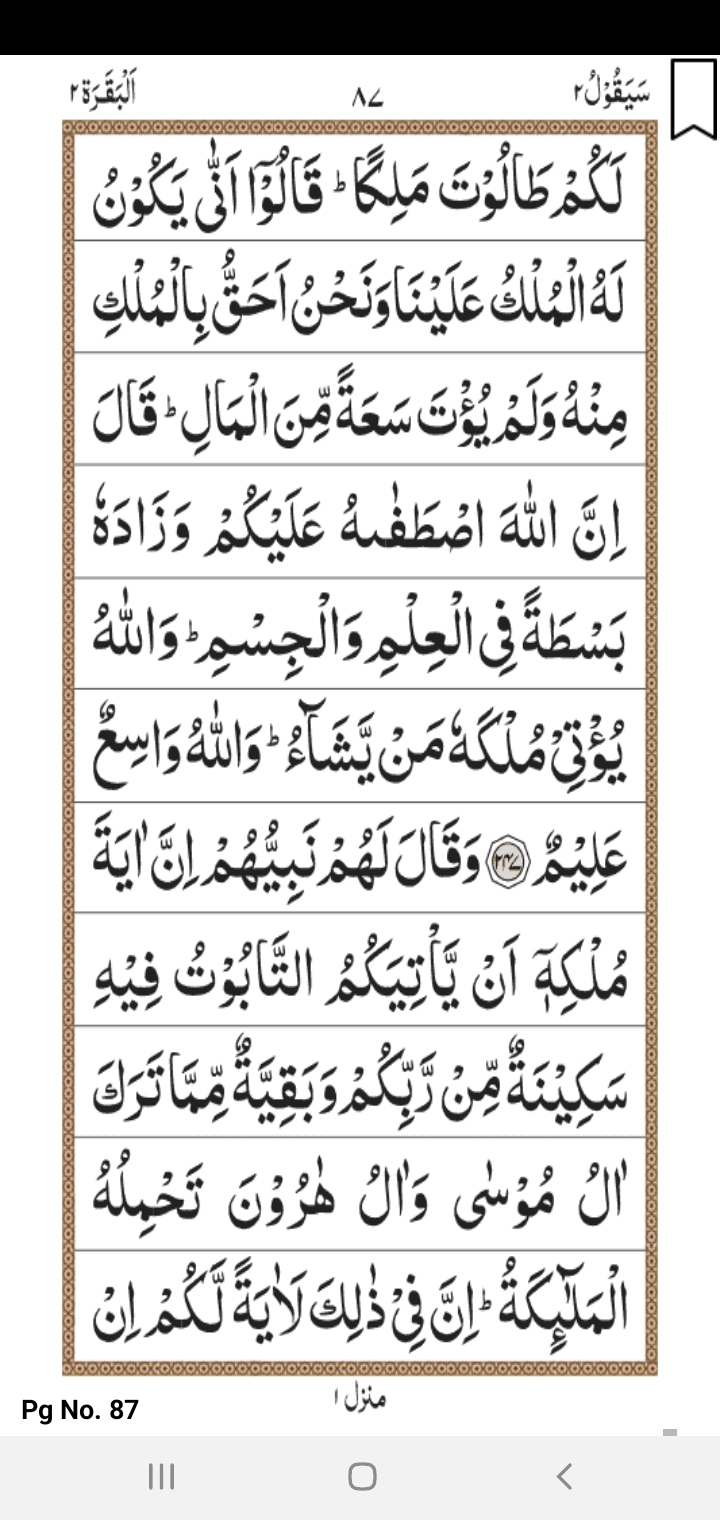 سَيَقُوْلُ ٢ ٨٧ اَلْبَقَرَة ٢
لَكُمْ طَالُوْتَ مَلِكًا ؕ قَالُوْۤا اَنّٰى يَكُوْنُ
لَهُ الْمُلْكُ عَلَيْنَا وَنَحْنُ اَحَقُّ بِالْمُلْكِ
مِنْهُ وَلَمْ يُؤْتَ سَعَةً مِّنَ الْمَالِ ؕ قَالَ
اِنَّ اللّٰهَ اصْطَفٰٮهُ عَلَيْكُمْ وَزَادَهٗ
بَسْطَةً فِى الْعِلْمِ وَالْجِسْمِ ؕ وَاللّٰهُ
يُؤْتِىْ مُلْكَهٗ مَنْ يَّشَآءُ ؕ وَاللّٰهُ وَاسِعٌ
عَلِيْمٌ ﴿۲۴۷﴾ وَقَالَ لَهُمْ نَبِيُّهُمْ اِنَّ اٰيَةَ
مُلْكِهٖۤ اَنْ يَّاْتِيَكُمُ التَّابُوْتُ فِيْهِ
سَكِيْنَةٌ مِّنْ رَّبِّكُمْ وَبَقِيَّةٌ مِّمَّا تَرَكَ
اٰلُ مُوْسٰى وَاٰلُ هٰرُوْنَ تَحْمِلُهُ
الْمَلٰٓٮِٕكَةُ ؕ اِنَّ فِىْ ذٰلِكَ لَاٰيَةً لَّكُمْ اِنْ
منزل ١
Pg No. 87